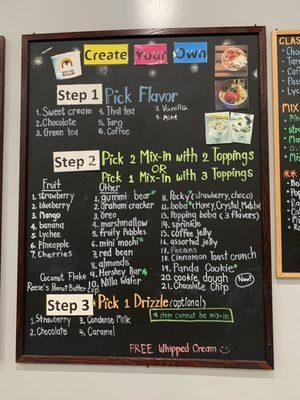 Create Your Own
Step 1 Pick Flavor
1. Sweet cream 4. Thai tea 7. Vanilla
2. Chocolate 5. Taro 8. Mint
3. Green tea 6. Coffee
Step 2 Pick 2 Mix-in with 2 Toppings
OR
Pick 1 Mix-in with 3 Toppings
Fruit
1. strawberry
2. blueberry
3. Mango
4. banana
5. Lychee
6. Pineapple
7. Cherries
Coconut Flake
Reese's Peanut Butter Cup
Other
1. gummi bear*
2. Graham cracker
3. oreo
4. marshmallow
5. Fruity Pebbles
6. mini mochi*
7. red bean
8. almonds
9. Hershey Bar*
10. Nilla Water
11. Pocky* (strawberry, choco)
12. boba* (Honey, Crystal, Matcha)
13. Popping boba (3 flavors)
14. sprinkles
15. coffee jelly
16. assorted jelly
17. Pecans
18. Cinnamon Toast crunch
19. Panda Cookie*
20. cookie dough New!
21. Chocolate Chip
Step 3 Pick 1 Drizzle (optional)
1. Strawberry 3. Condense Milk
2. Chocolate 4. Caramel
* item cannot be mix-in
FREE Whipped Cream
MIX